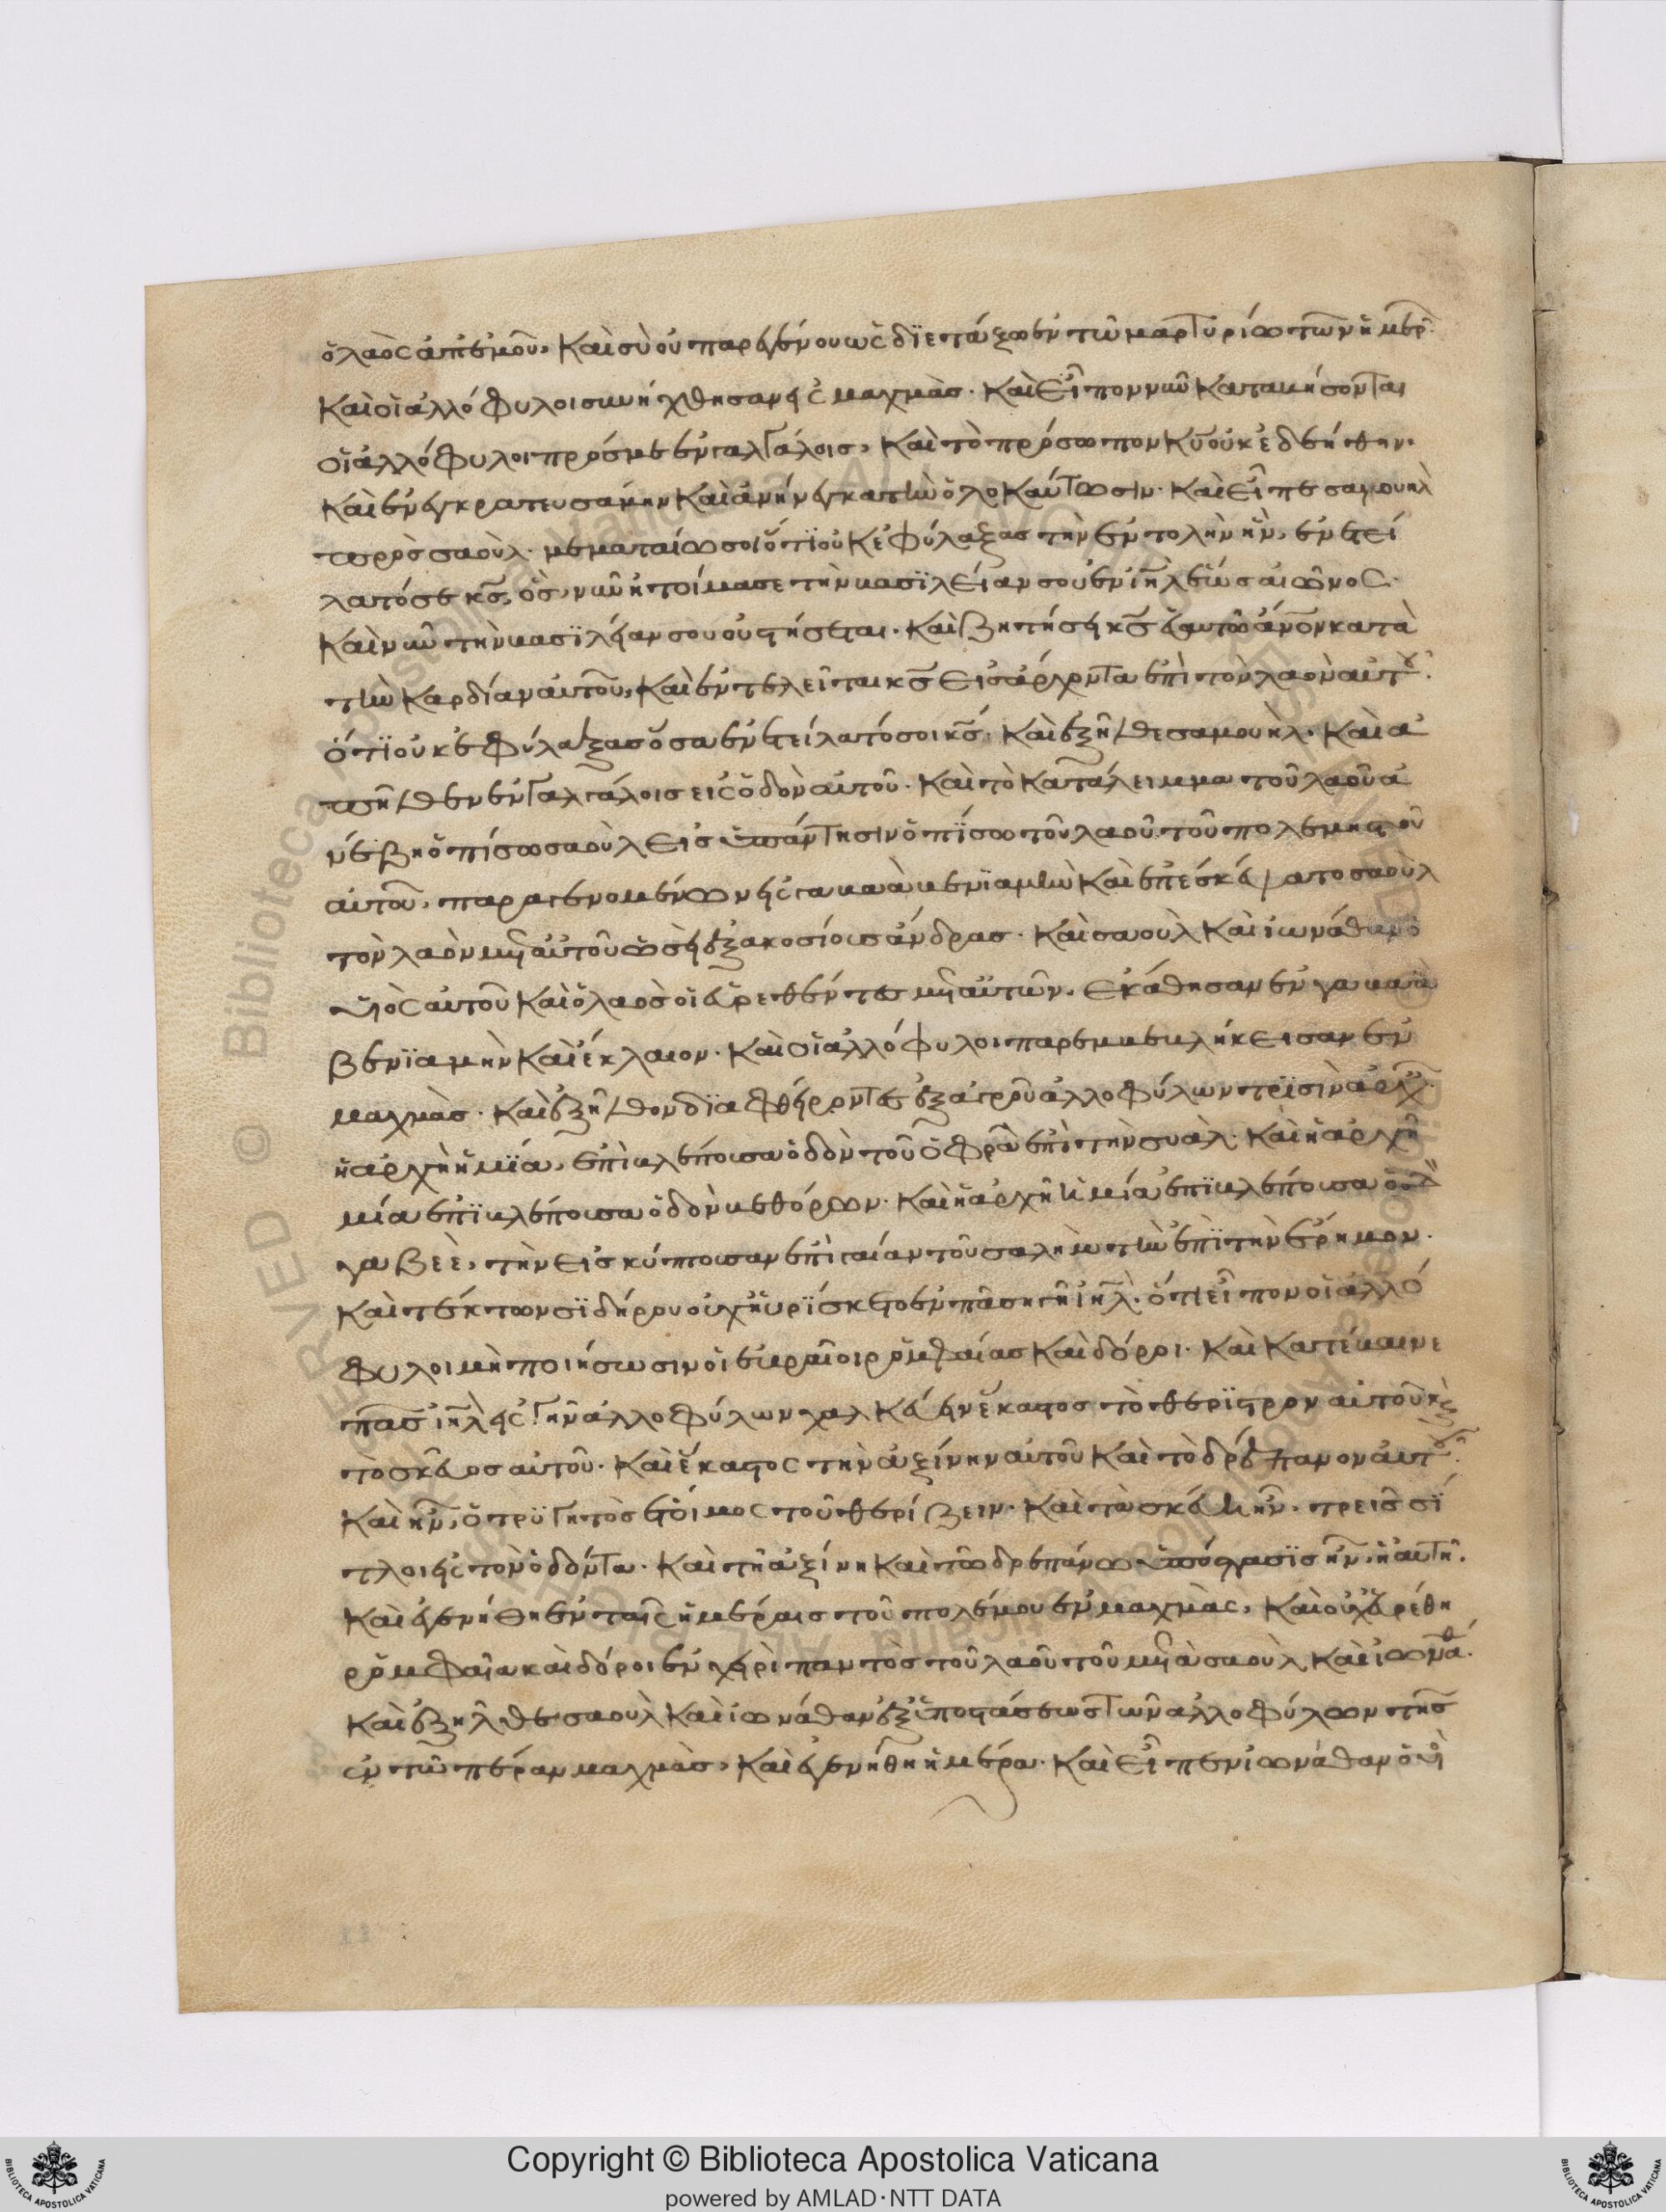 ὁ λαὸς ἀπ' ἐμοῦ, καὶ σὺ οὐ παρεγένου ὡς διετάξω ἐν τῷ μαρτυρίῳ τῶν ἡμερ.
καὶ οἱ ἀλλόφυλοι συνήχθησαν εἰς μαχμὰσ. καὶ εἶπον νῦν καταβήσονται
οἱ ἀλλόφυλοι πρός με ἐν γαλγάλοισ, καὶ τὸ πρόσωπον κυ οὐκ ἐδεήθην.
καὶ ἐνεγκρατευσάμην καὶ ἀνήνεγκα τὴν ὁλοκαύτωσιν. καὶ εἶπε σαμουὴλ
πρὸς σαοὺλ. μεματαίωσοι ὅτι οὐκ ἐφύλαξασ τὴν ἐντολὴν ἣν, ἐνετεί
λατό σε κς, ὃς, νῦν ἡτοίμασε τὴν βασιλείαν σου ἐν ιηλ ἕως αἰῶνος.
καὶ νῦν τὴν βασιλείαν σου οὐ στήσεται. καὶ ζητήσει κς ἑαυτῷ ανον κατὰ
τὴν καρδίαν αὐτοῦ, καὶ ἐντελεῖται κς εἰς ἄρχοντα ἐπὶ τὸν λαὸν αὐτοῦ.
ὅτι οὐκ ἐφύλαξασ ὅσα ἐνετείλατό σοι κς. καὶ ἐξῆλθε σαμουὴλ. καὶ ἀ
πῆλθεν ἐν γαλγάλοισ εἰς ὁδὸν αὐτοῦ. καὶ τὸ κατάλειμμα τοῦ λαοῦ ἀ
νέβη ὀπίσω σαοὺλ εἰς ἀπάντησιν ὀπίσω τοῦ λαοῦ τοῦ πολεμιστοῦ
αὐτοῦ, παραγενομένων εἰς γαβαὰ βενϊαμὶν καὶ ἐπεσκέψατο σαοὺλ
τὸν λαὸν μετ' αὐτοῦ ὡσεὶ ἑξακοσίουσ ἄνδρασ. καὶ σαοὺλ καὶ ἰωνάθαν ὁ
υἱὸς αὐτοῦ καὶ ὁ λαὸσ οἱ εὑρεθέντεσ μετ' αὐτῶν. ἐκάθησαν ἐν γαβαὰ
βενϊαμὴν καὶ ἔκλαιον. καὶ οἱ ἀλλόφυλοι παρεμβεβλήκεισαν ἐν
μαχμὰσ. καὶ ἐξῆλθον διαφθείροντεσ ἐξ ἀγροῦ ἀλλοφύλων τρισὶν ἀρχ.
ἡ ἀρχὴ ἡ μία, ἐπιβλέπουσα ὁδὸν τοῦ ὀφρὰ ἐπὶ τὴν συὰλ. καὶ ἡ ἀρχὴ
μία ἐπιβλέπουσα ὁδὸν βεθόρων. καὶ ἡ ἀρχὴ ἡ μία ἐπιβλέπουσα ὁδὸν
γαβεὲ, τὴν εἰσκύπτουσαν ἐπὶ γαίαν τοῦ σαλὴμ τὴν ἐπὶ τὴν ἔρημον.
καὶ τέκτων σιδήρου οὐχ ηὑρίσκετο ἐν πάσῃ γῇ ιηλ. ὅτι εἶπον οἱ ἀλλό
φυλοι μὴ ποιήσωσιν οἱ ἑβραῖοι ῥομφαίασ καὶ δόροι. καὶ κατέβαινε
πᾶσ ιηλ εἰς γῆν ἀλλοφύλων χαλκεύειν ἕκαστοσ τὸ θέριστρον αὐτοῦ κὲ
τὸ σκεῦοσ αὐτοῦ. καὶ ἕκαστος τὴν ἀξίνην αὐτοῦ καὶ τὸ δρέπανον αὐτοῦ.
καὶ ἦν, ὁ τρύγητὸσ ἕτοιμος τοῦ θερίζειν. καὶ τὰ σκεύη ἦν. τρεῖσ σί
κλοι εἰς τὸν ὀδόντα. καὶ τῇ ἀξίνῃ καὶ τῷ δρεπάνω ὑπόστασισ ἦν, ἡ αὐτή.
καὶ ἐγενήθη ἐν ταῖς ἡμέραισ τοῦ πολέμου ἐν μαχμὰς, καὶ οὐχ εὑρέθη
ῥομφαία καὶ δόροι ἐν χειρὶ παντὸσ τοῦ λαοῦ τοῦ μετὰ σαοὺλ καὶ ἰωνάθ.
καὶ ἐξῆλθε σαοὺλ καὶ ἰωνάθαν ἐξ ὑποστάσεωσ τῶν ἀλλοφύλων τῆσ
ἐν τῷ πέραν μαχμὰσ, καὶ ἐγενήθη ἡμέρα. καὶ εἶπεν ἰωνάθαν ὁ υἱ
Copyright © Biblioteca Apostolica Vaticana
powered by AMLAD·NTT DATA